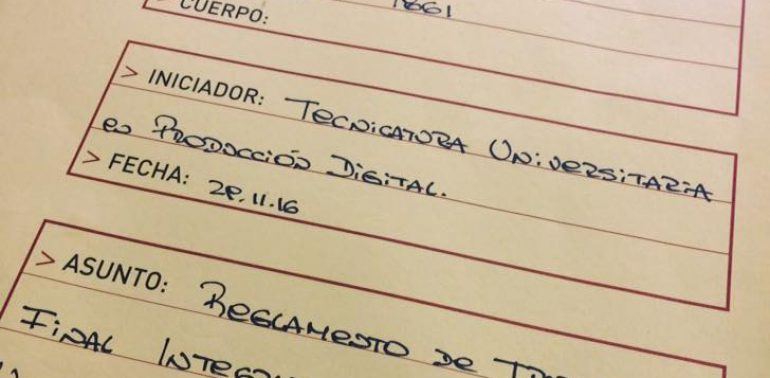 1861
> CUERPO:
> INICIADOR: TECNICATURA UNIVERSITARIA
EN PRODUCCIÓN DIGITAL.
> FECHA: 28.11.16
> ASUNTO: REGLAMENTO DE
FINAL